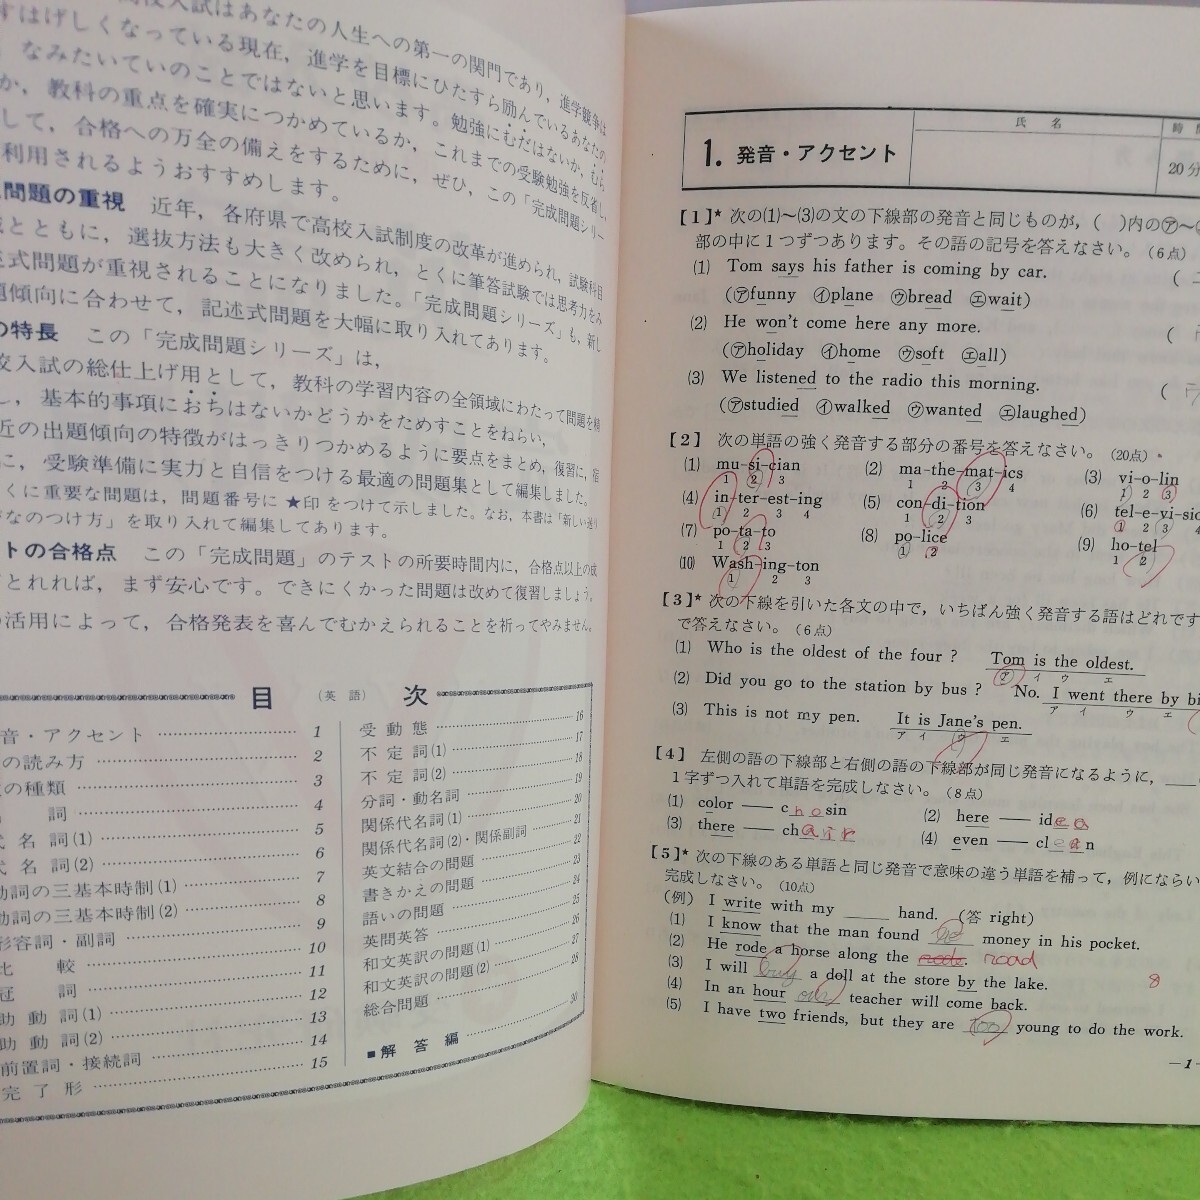 高校入試はあなたの人生への第一の関門であり，進学競争は
すはげしくなっている現在，進学を目標にひたすら励んでいるあなたの
なみたいていのことではないと思います。勉強にむだはないか，むら
か，教科の重点を確実につかめているか，これまでの受験勉強を反省し，
して，合格への万全の備えをするために，ぜひ，この「完成問題シリー
利用されるようおすすめします。
問題の重視　近年，各府県で高校入試制度の改革が進められ，試験科目
とともに，選抜方法も大きく改められ，とくに筆答試験では思考力をみ
式問題が重視されることになりました。「完成問題シリーズ」も，新し
題傾向に合わせて，記述式問題を大幅に取り入れてあります。
の特長　この「完成問題シリーズ」は，
校入試の総仕上げ用として，教科の学習内容の全領域にわたって問題を精
し，基本的事項におちはないかどうかをためすことをねらい，
近の出題傾向の特徴がはっきりつかめるように要点をまとめ，復習に，宿
に，受験準備に実力と自信をつける最適の問題集として編集しました。
くに重要な問題は，問題番号に★印をつけて示しました。なお，本書は「新しい送り
がなのつけ方」を取り入れて編集してあります。
トの合格点　この「完成問題」のテストの所要時間内に，合格点以上の成
とれれば，まず安心です。できにくかった問題は改めて復習しましょう。
の活用によって，合格発表を喜んでむかえられることを祈ってやみません。
目（英語）次
音・アクセント 1
の読み方 2
の種類 3
詞 4
代名詞(1) 5
代名詞(2) 6
動詞の三基本時制(1) 7
動詞の三基本時制(2) 8
形容詞・副詞 9
比較 10
冠詞 11
助動詞(1) 12
助動詞(2) 13
前置詞・接続詞 14
完了形 15
受動態 16
不定詞(1) 17
不定詞(2) 18
分詞・動名詞 19
関係代名詞(1) 20
関係代名詞(2)・関係副詞 21
英文結合の問題 22
書きかえの問題 23
語いの問題 24
英問英答 25
和文英訳の問題(1) 26
和文英訳の問題(2) 27
総合問題 28
■解答編 30
1. 発音・アクセント
氏名
時
20分
[1]* 次の(1)〜(3)の文の下線部の発音と同じものが，(　)内の㋐〜
部の中に1つずつあります。その語の記号を答えなさい。(6点)
(1) Tom says his father is coming by car.
(㋐funny ㋑plane ㋒bread ㋓wait)
(2) He won't come here any more.
(㋐holiday ㋑home ㋒soft ㋓all)
(3) We listened to the radio this morning.
(㋐studied ㋑walked ㋒wanted ㋓laughed)
[2] 次の単語の強く発音する部分の番号を答えなさい。(20点)
(1) mu-si-cian (2) ma-the-mat-ics (3) vi-o-lin
1 2 3 1 2 3 4 1 2 3
(4) in-ter-est-ing (5) con-di-tion (6) tel-e-vi-sio
1 2 3 4 1 2 3 1 2 3
(7) po-ta-to (8) po-lice (9) ho-tel
1 2 3 1 2 1 2
(10) Wash-ing-ton
1 2 3
[3]* 次の下線を引いた各文の中で，いちばん強く発音する語はどれです
で答えなさい。(6点)
(1) Who is the oldest of the four ? Tom is the oldest.
ア イ ウ エ
(2) Did you go to the station by bus ? No. I went there by bi
ア イ ウ エ
(3) This is not my pen. It is Jane's pen.
ア イ ウ エ
[4] 左側の語の下線部と右側の語の下線部が同じ発音になるように，
1字ずつ入れて単語を完成しなさい。(8点)
(1) color ― chosin (2) here ― idea
(3) there ― chair (4) even ― clean
[5]* 次の下線のある単語と同じ発音で意味の違う単語を補って，例にならい
完成しなさい。(10点)
(例) I write with my ____ hand. (答 right)
(1) I know that the man found no money in his pocket.
(2) He rode a horse along the road
(3) I will buy a doll at the store by the lake.
8
(4) In an hour our teacher will come back.
(5) I have two friends, but they are too young to do the work.
—1—